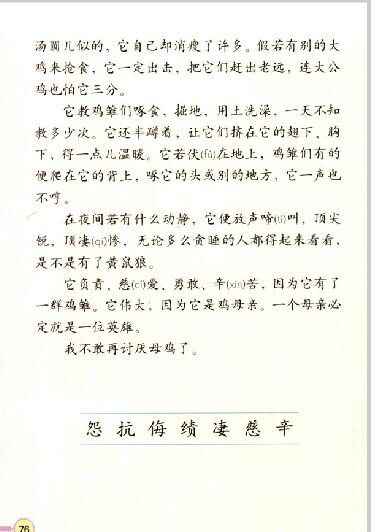 汤圆儿似的，它自己却消瘦了许多。假若有别的大
鸡来抢食，它一定出击，把它们赶出老远，连大公
鸡也怕它三分。
它教鸡雏们啄食、掘地、用土洗澡，一天不知
教多少次。它还半蹲着，让它们挤在它的翅下、胸
下，得一点儿温暖。它若伏(fú)在地上，鸡雏们有的
便爬在它的背上，啄它的头或别的地方，它一声也
不哼。
在夜间若有什么动静，它便放声啼(tí)叫，顶尖
锐，顶凄(qī)惨，无论多么贪睡的人都得起来看看，
是不是有了黄鼠狼。
它负责、慈(cí)爱、勇敢、辛(xīn)苦，因为它有了
一群鸡雏。它伟大，因为它是鸡母亲。一个母亲必
定就是一位英雄。
我不敢再讨厌母鸡了。
怨 抗 侮 绩 凄 慈 辛
76